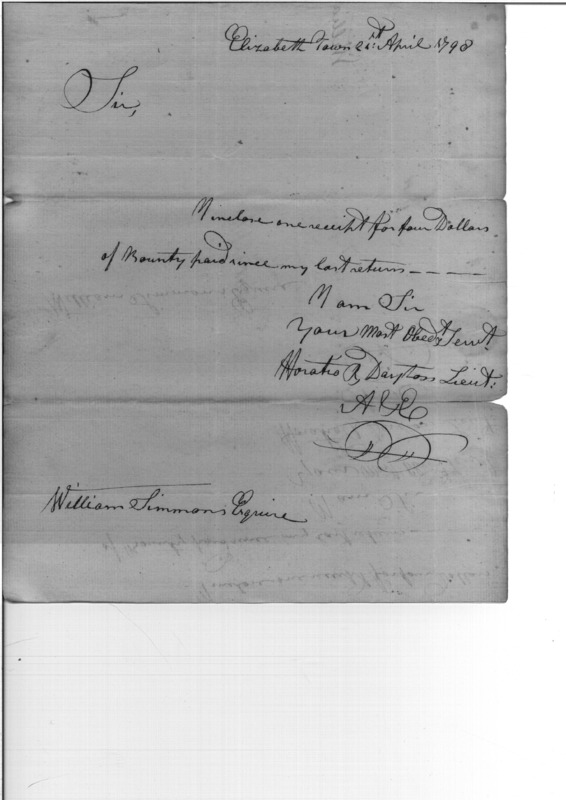 Elizabeth Town 21st: April 1798
Sir,
I inclose one receipt for four Dollars
of Bounty paid since my last return ————
I am Sir
Your Most Obedt Servt.
Horatio R Dayton Lieut:
William Simmons Esquire